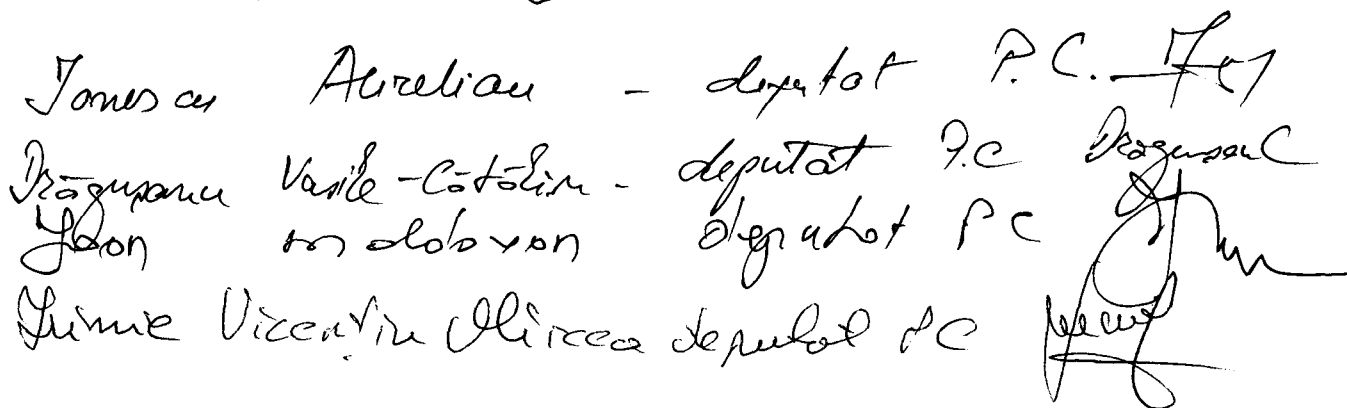 Ionescu Aurelian - deputat P.C.
Drăgușanu Vasile-Cătălin - deputat P.C Drăgușanu C
Ioan Moldovan deputat PC
Irimie Vicențiu Mircea deputat PC